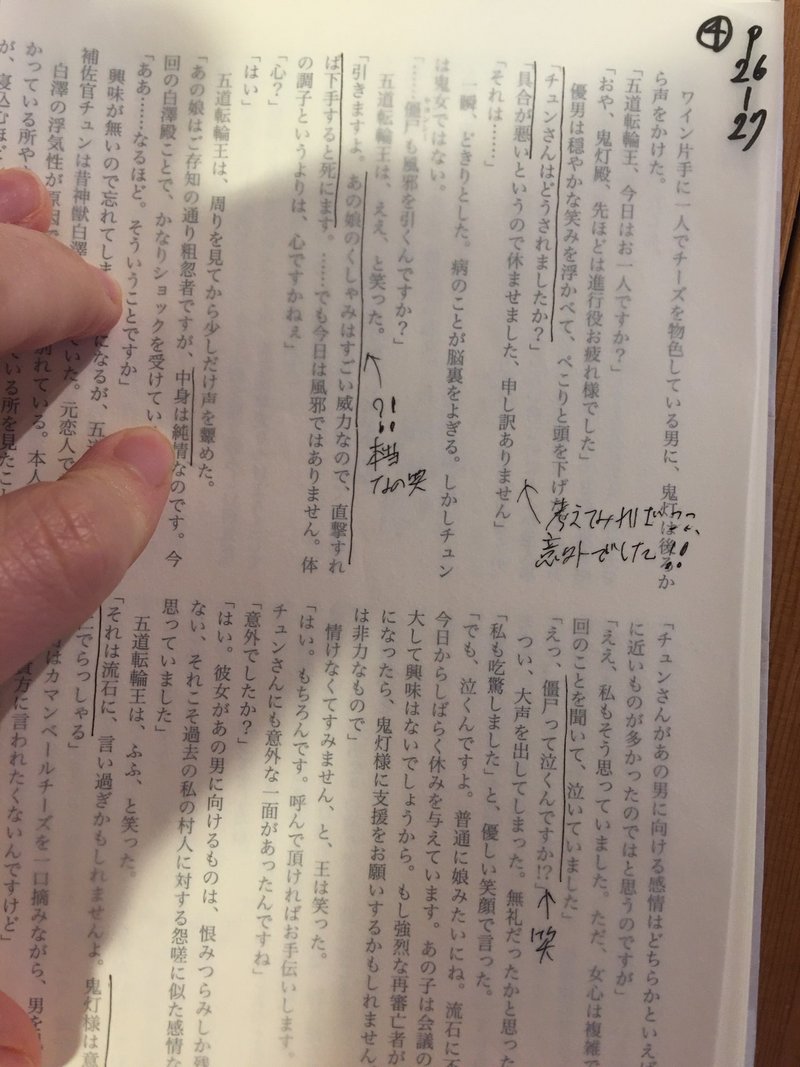 ④ P26-27
ワイン片手に一人でチーズを物色している男に、鬼灯は後ろか
ら声をかけた。
「五道転輪王、今日はお一人ですか？」
「おや、鬼灯殿、先ほどは進行役お疲れ様でした」
優男は穏やかな笑みを浮かべて、ぺこりと頭を下げ
「チュンさんはどうされましたか？」
「具合が悪いというので休ませました、申し訳ありません」
「それは……」
一瞬、どきりとした。病のことが脳裏をよぎる。しかしチュン
は鬼女ではない。
「……僵尸も風邪を引くんですか？」
五道転輪王は、ええ、と笑った。
「引きますよ。あの娘のくしゃみはすごい威力なので、直撃すれ
ば下手すると死にます。……でも今日は風邪ではありません。体
の調子というよりは、心ですかねぇ」
「心？」
「はい」
五道転輪王は、周りを見てから少しだけ声を顰めた。
「あの娘はご存知の通り粗忽者ですが、中身は純情なのです。今
回の白澤殿ことで、かなりショックを受けてい
「ああ……なるほど。そういうことですか」
興味が無いので忘れてしま
になるが、五道
補佐官チュンは昔神獣白澤
いた。元恋人で
白澤の浮気性が原因で
別れている。本人
かっている所や
ている所を見たこと
が、寝込むほど
考えてみれば
意外でした!!
?!:本当
なの笑
「チュンさんがあの男に向ける感情はどちらかといえば
に近いものが多かったのではと思うのですが」
「ええ、私もそう思っていました。ただ、女心は複雑で
回のことを聞いて、泣いていました」
「えっ、僵尸って泣くんですか!?」
笑
つい、大声を出してしまった。無礼だったかと思った
「私も吃驚しました」と、優しい笑顔で言った。
「でも、泣くんですよ。普通に娘みたいにね。流石に不
今日からしばらく休みを与えています。あの子は会議の
大して興味はないでしょうから。もし強烈な再審亡者が
になったら、鬼灯様に支援をお願いするかもしれません
は非力なもので」
情けなくてすみません、と、王は笑った。
「はい。もちろんです。呼んで頂ければお手伝いします。
チュンさんにも意外な一面があったんですね」
「意外でしたか？」
「はい。彼女があの男に向けるものは、恨みつらみしか残
ない、それこそ過去の私の村人に対する怨嗟に似た感情な
思っていました」
五道転輪王は、ふふ、と笑った。
「それは流石に、言い過ぎかもしれませんよ。鬼灯様は意
二でらっしゃる」
はカマンベールチーズを一口摘みながら、男を
貴方に言われたくないんですけど」